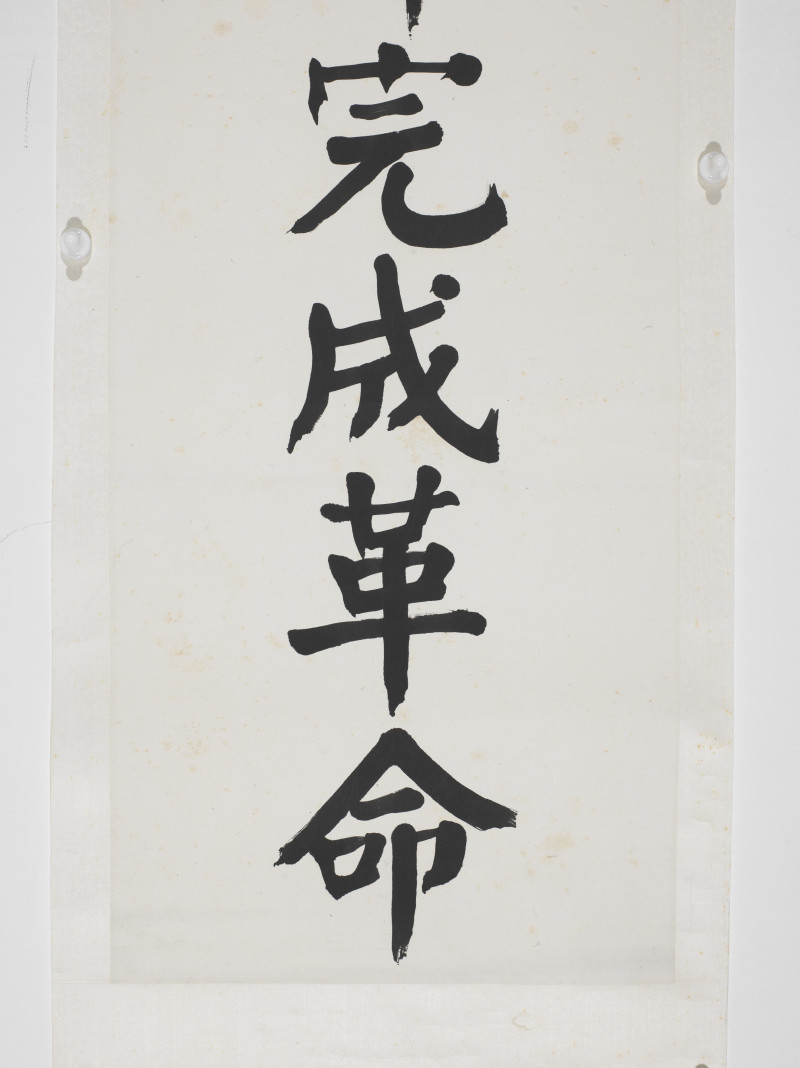 完成革命